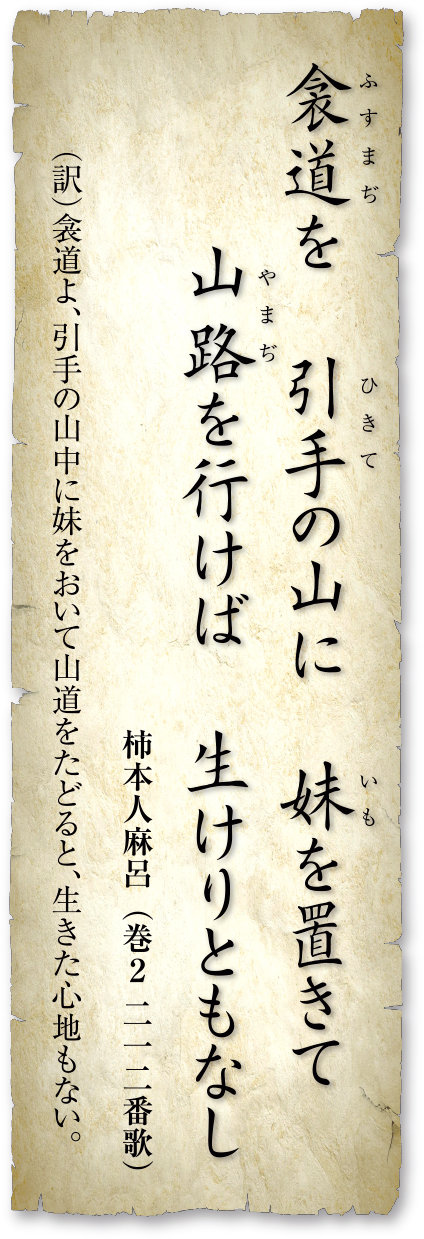 衾道を 引手の山に 妹を置きて
ふすまぢ ひきて いも
山路を行けば 生けりともなし
やまぢ
柿本人麻呂（巻２ 二一二番歌）
（訳）衾道よ、引手の山中に妹をおいて山道をたどると、生きた心地もない。